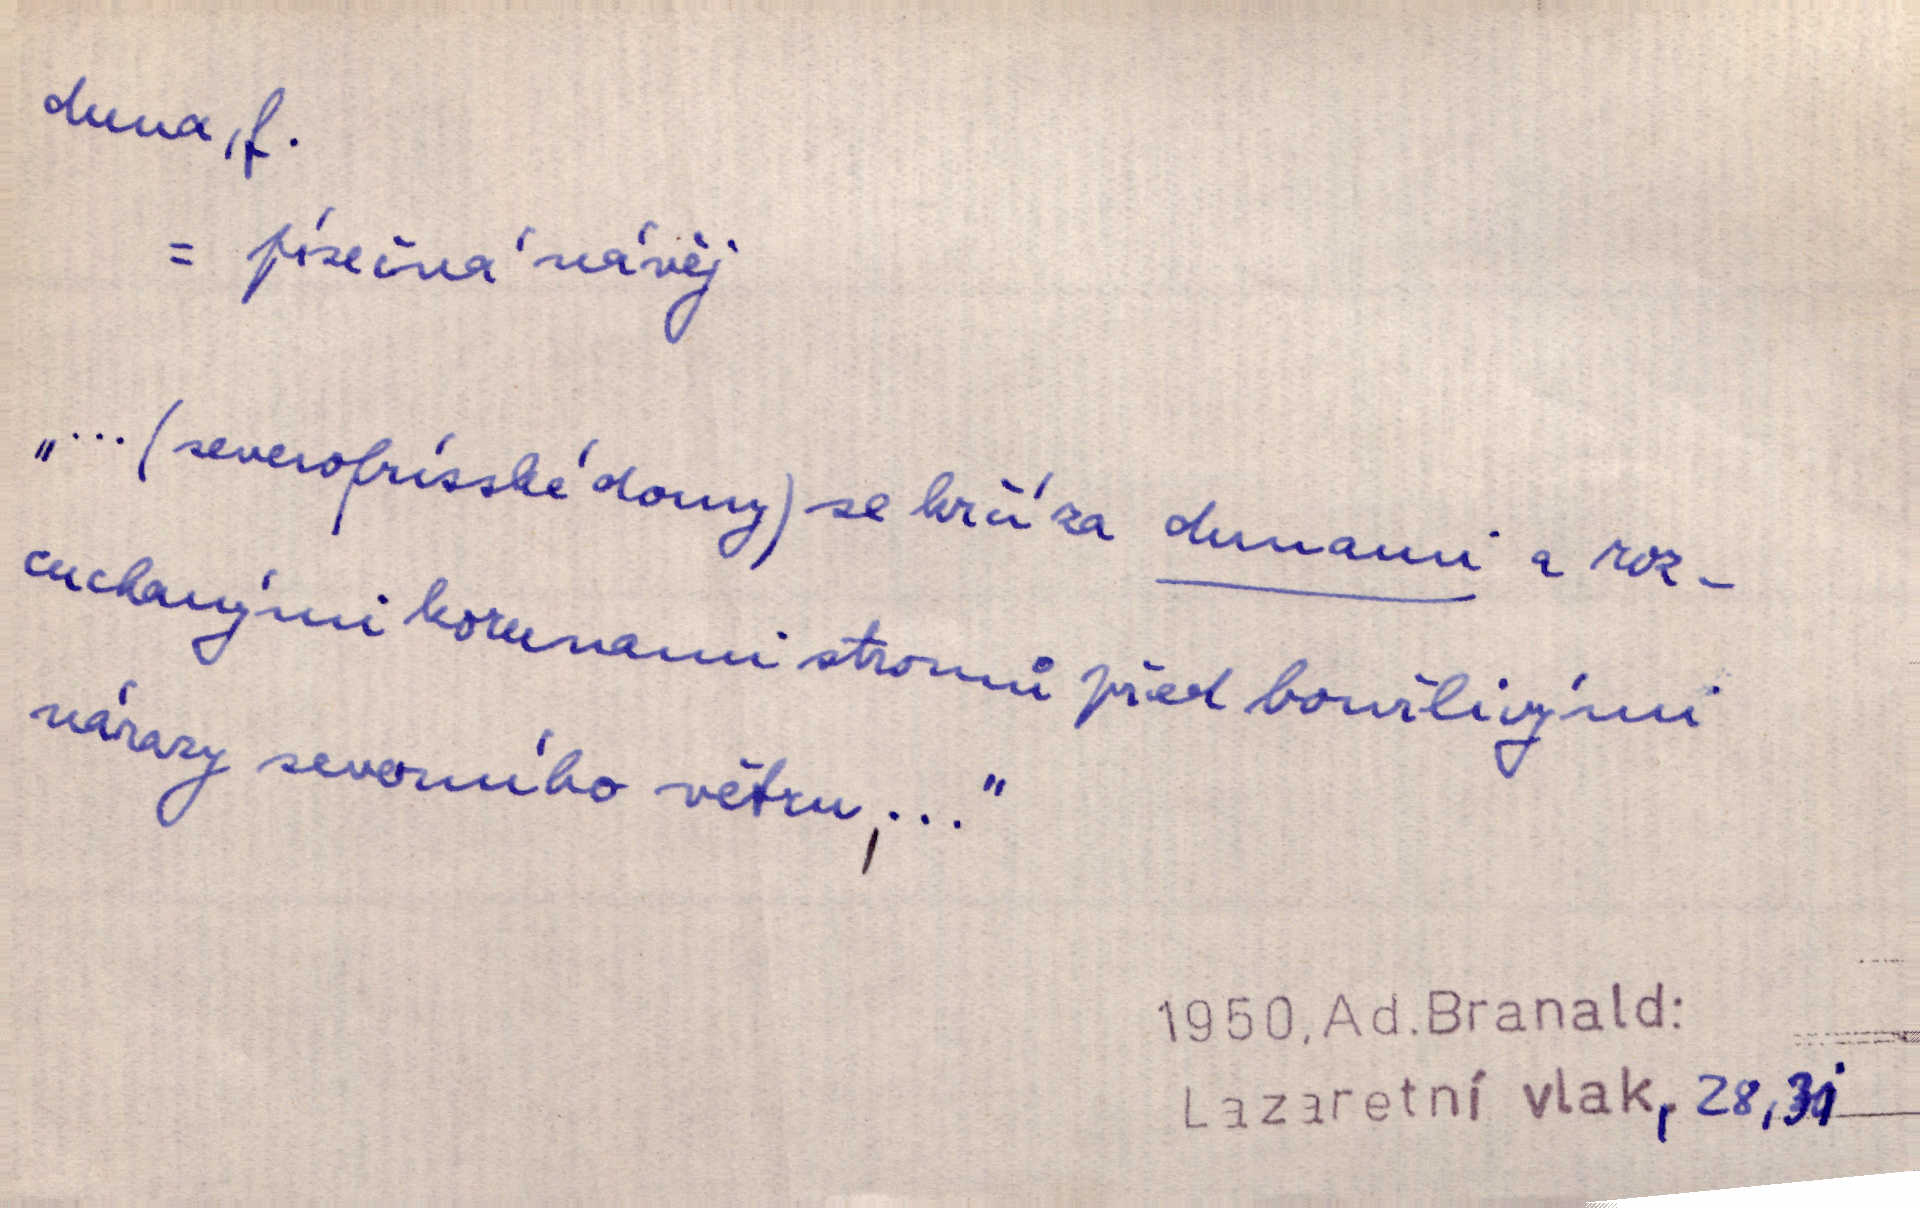 duna, f.
= písečná návěj
„...(severofrísské domy) se krčí za dunami a roz-
cuchanými korunami stromů před bouřlivými
nárazy severního větru,..."
1950, Ad. Branald:
Lazaretní vlak, 28,